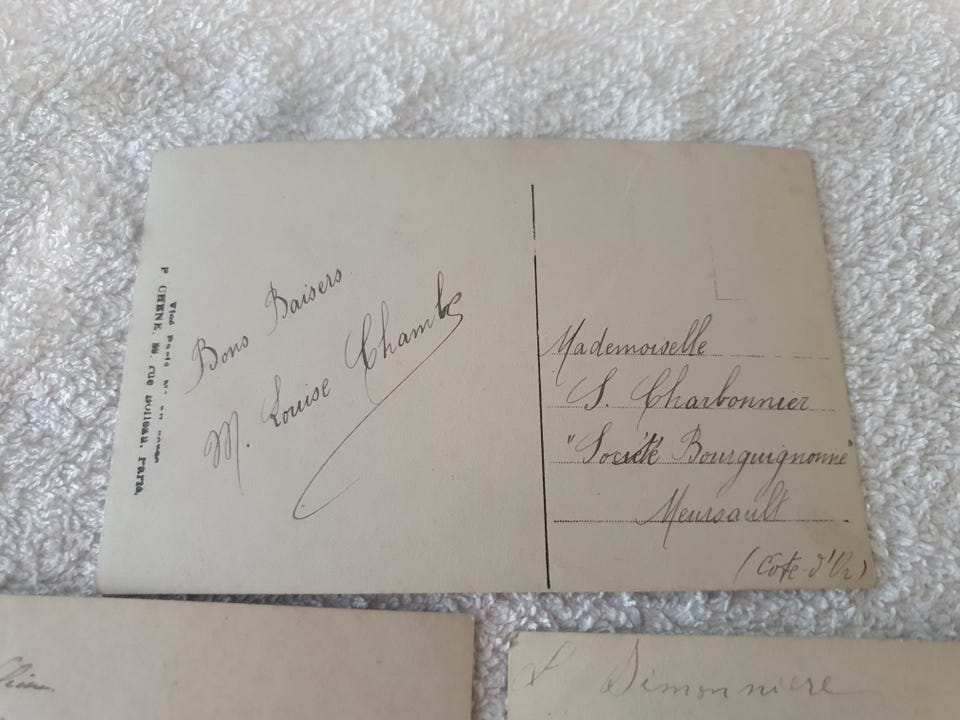 Bons Baisers
M. Louise Chamb
P CHENE, rue Boileau, Paris.
Mademoiselle
S. Charbonnier
"Société Bourguignonne"
Meursault
(Côte-d'Or)
Simonniere